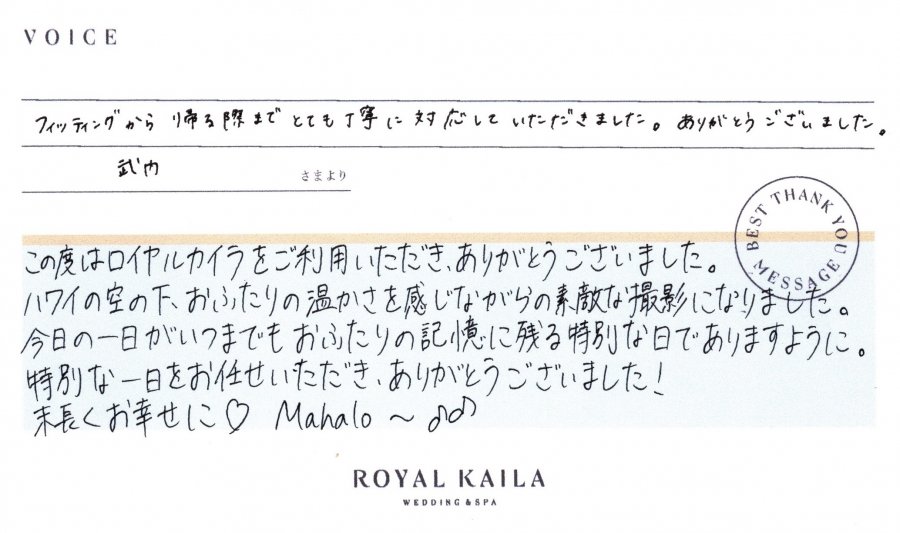 VOICE
フィッティングから 帰る際まで とても丁寧に 対応して いただきました。 ありがとうございました。
武内 さまより
BEST THANK YOU MESSAGE
この度はロイヤルカイラをご利用いただき、ありがとうございました。
ハワイの空の下、おふたりの温かさを感じながらの素敵な撮影になりました。
今日の一日がいつまでもおふたりの記憶に残る特別な日でありますように。
特別な一日をお任せいただき、ありがとうございました!
末長くお幸せに♡ Mahalo ~ ♪♪
ROYAL KAILA
WEDDING & SPA